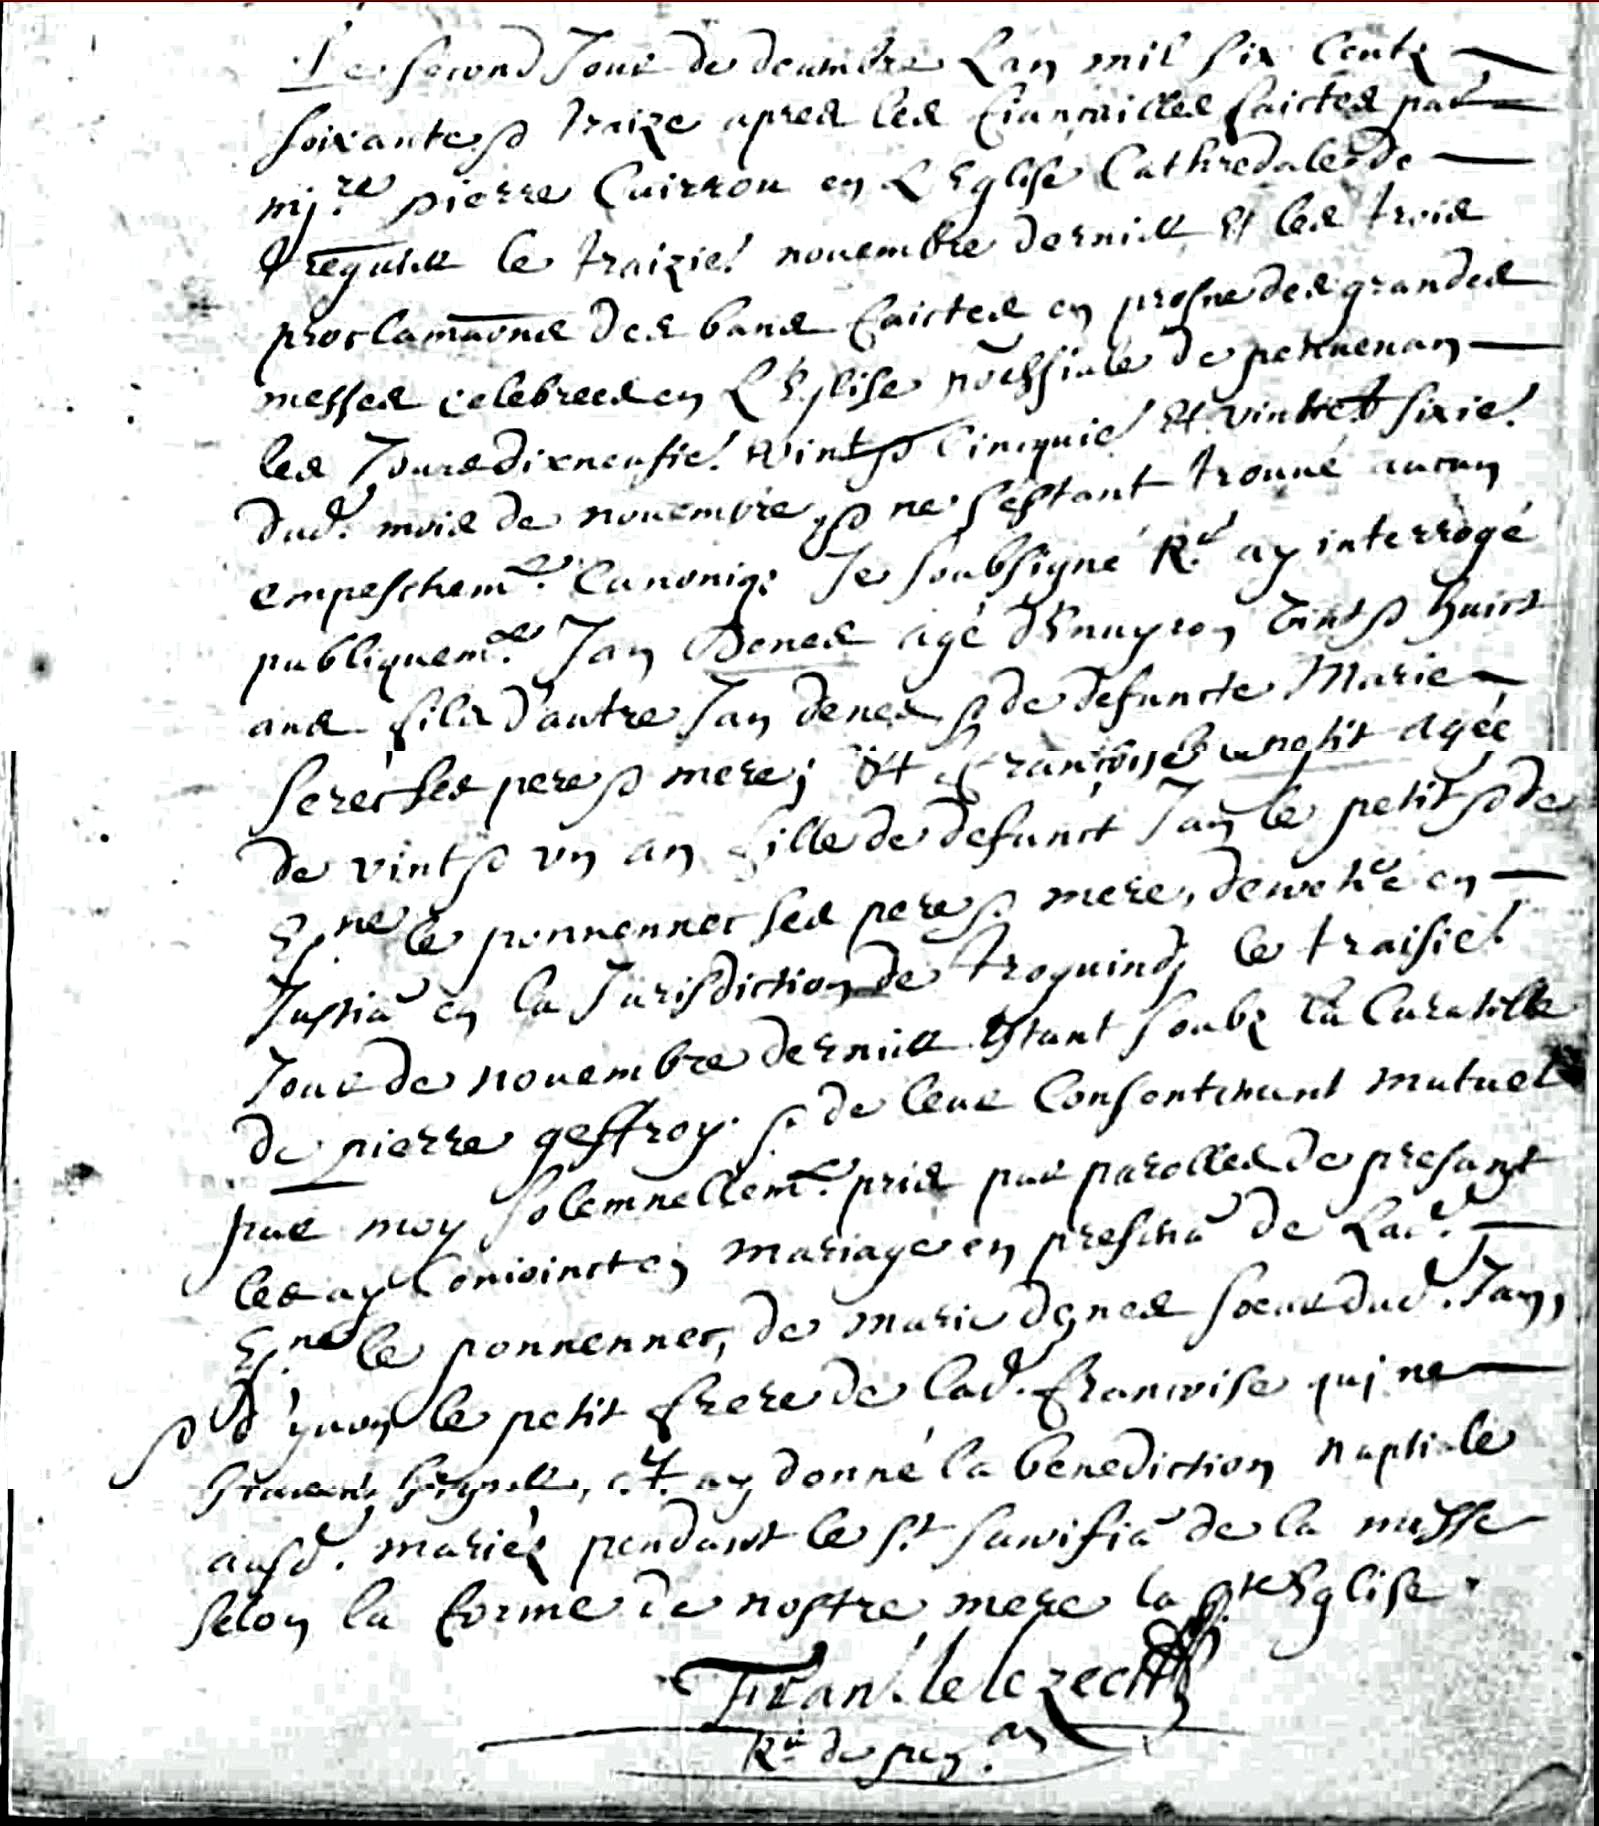 Le second Jour de decembre Lan mil six Centz
soixante & traize apres les fiançailles faictes par
mj.re pierre Cuirrou en L'Eglise Cathredalle de
Treguier le traizie! novembre dernier Et les trois
proclama͞ons des bans faictes en prosne des grandes
messes celebrees en L'Eglise p͞oessiale de pervenan
les Jours dixneufie! vint & cincquie! Et vint & sixie!
dud. mois de novembre & ne s'estant trouvé aucun
empeschem.t Canoniq; Je soubsigné R.r ay interrogé
publiquem.t Jan Denes agé d'Envyron vint & huict
ans fils d'autre Jan denes & de defuncte Marie
ses pere & mere; Et Francoise le petit agée
de vint & un an fille de defunct Jan le petit & de
le ponnenner ses pere & mere, decretée en
Justice en la Jurisdiction de Troguindy le traisie!
Jour de novembre dernier Estant soubz la Curatelle
de pierre geffroy. & de leur Consentement mutuel
par moy solemnellem.t pris par parolles de presant
les ay conioinct en mariage en presence de Lad.
le ponnenner, de marie denes soeur dud. Jan,
& d'yvon le petit frere de lad. francoise quj ne
scavent signer, Et ay donné la benediction nuptiale
ausd. mariés pendant le s.t sacrifice de la messe
selon la forme de nostre mere la s.te Eglise.
Fran. le lezech
R.r de pen.an